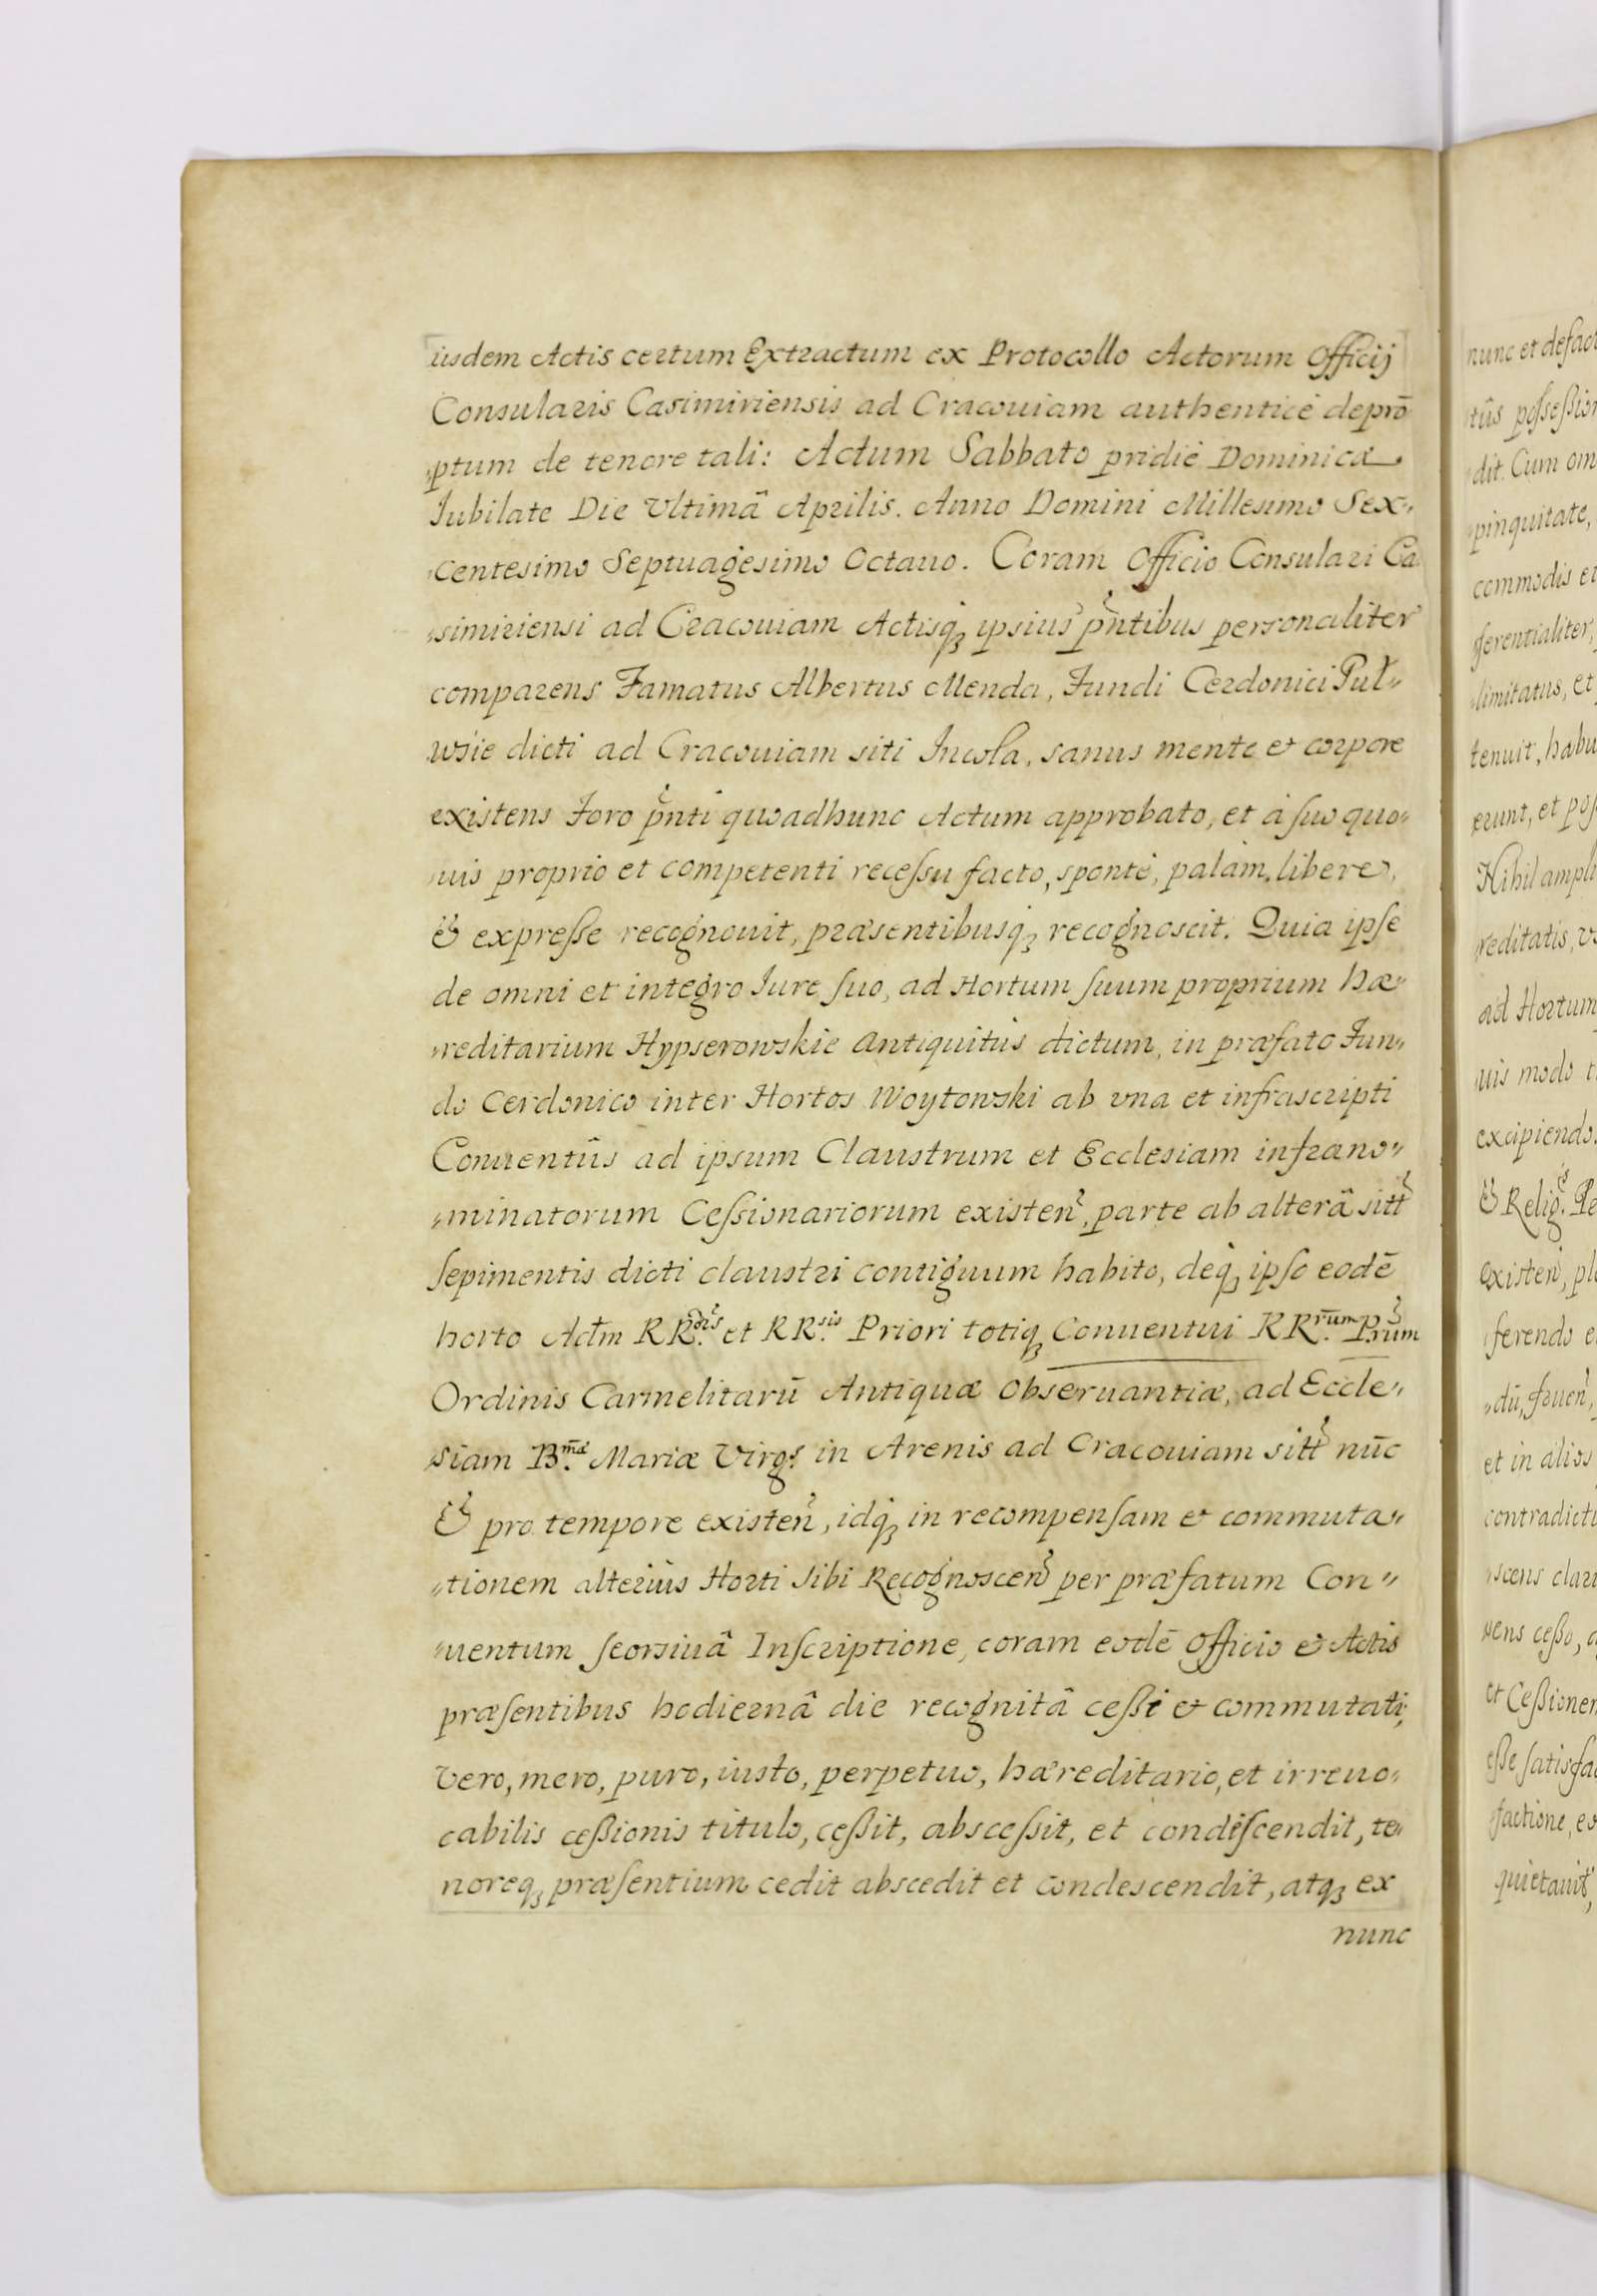 iisdem Actis certum Extractum ex Protocollo Actorum Officij
Consularis Casimiriensis ad Cracouiam authenticè deprō
„ptum de tenore tali: Actum Sabbato pridiè Dominicæ
Iubilate Die Vltimâ Aprilis. Anno Domini Millesimo Sex„
„centesimo Septuagesimo Octauo. Coram Officio Consulari Ca„
„simiriensi ad Cracouiam Actisq; ipsius pn̄tibus personaliter
comparens Famatus Albertus Menda, Fundi Cerdonici Pul„
wsie dicti ad Cracouiam siti Incola, sanus mente et corpore
existens Foro pn̄ti quoadhunc Actum approbato, et à suo quo„
„uis proprio et competenti recessu facto, spontè, palàm, libere,
& expresse recognouit, præsentibusq; recognoscit. Quia ipse
de omni et integro Iure suo, ad Hortum suum proprium hæ„
„reditarium Hypserowskie Antiquitùs dictum, in præfato Fun„
do Cerdonico inter Hortos Woytowski ab vna et infrascripti
Conuentûs ad ipsum Claustrum et Ecclesiam infrano„
„minatorum Cessionariorum existen̄, parte ab alterâ sitt
sepimentis dicti claustri contiguum habito, deq; ipso eodē
horto Adm̄ RR.dis et RR.sis Priori totiq; Conuentui RR.rum Prum
Ordinis Carmelitarū Antiquæ Obseruantiæ, ad Eccle„
siam B.mæ Mariæ Virgs in Arenis ad Cracouiam sitt nūc
& pro tempore existen̄, idq; in recompensam et commuta„
„tionem alterius Horti sibi Recognoscen̄ per præfatum Con„
„uentum seorsiuâ Inscriptione, coram eodē Officio et Actis
præsentibus hodiernâ die recognitâ cessi et commutati,
vero, mero, puro, iusto, perpetuo, hæreditario, et irreuo„
cabilis cessionis titulo, cessit, abscessit, et condescendit, te„
noreq; præsentium cedit abscedit et condescendit, atq; ex
nunc
nunc et defact
tûs possession
dit. Cum om
pinquitate,
commodis et
ferentialiter,
limitatus, et
tenuit, habu
erunt, et pos
Nihil ampli
reditatis, v
ad Hortum
uis modo t
excipiendo.
& Relig. Pe
Existen̄, pl
ferendo e
„dū, fruen̄,
et in alios
contradicti
„scens clari
uens cesso, a
et Cessionem
esse satisfac
factione, eo
quietauit,